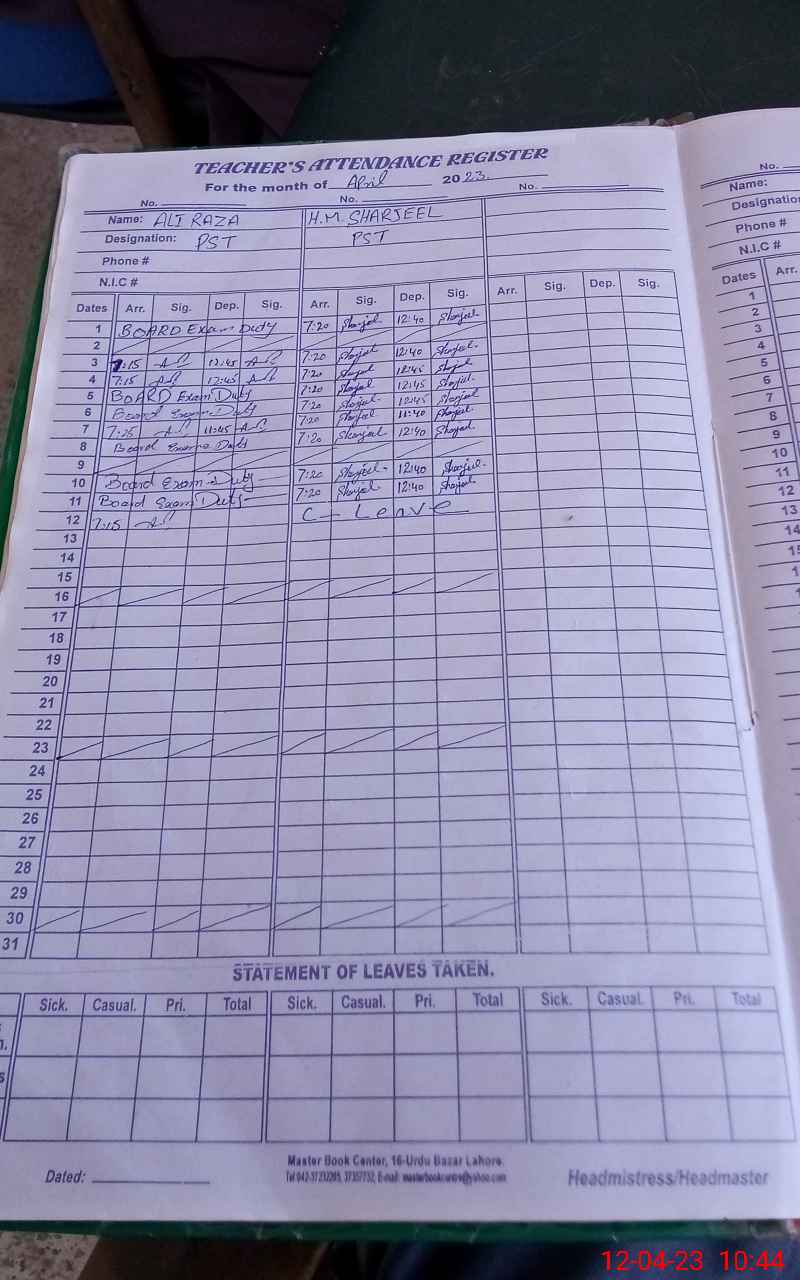 TEACHER'S ATTENDANCE REGISTER
For the month of April 2023.
No. No. No.
Name: ALI RAZA H.M. SHARJEEL
Designation: PST PST
Phone #
N.I.C #
Dates Arr. Sig. Dep. Sig. Arr. Sig. Dep. Sig. Arr. Sig. Dep. Sig.
1 BOARD Exam Duty 7:20 Sharjeel 12:40 Sharjeel
2
3 7:15 12:45 7:20 Sharjeel 12:40 Sharjeel
4 7:15 12:45 7:20 Sharjeel 12:45 Sharjeel
5 BOARD Exam Duty 7:20 Sharjeel 12:45 Sharjeel
6 Board Exam Duty 7:20 Sharjeel 12:45 Sharjeel
7 7:25 11:45 7:20 Sharjeel 11:40 Sharjeel
8 Board Exam Duty 7:20 Sharjeel 12:40 Sharjeel
9
10 Board Exam Duty 7:20 Sharjeel 12:40 Sharjeel
11 Board Exam Duty 7:20 Sharjeel 12:40 Sharjeel
12 7:15 C - Leave
13
14
15
16
17
18
19
20
21
22
23
24
25
26
27
28
29
30
31
STATEMENT OF LEAVES TAKEN.
Sick. Casual. Pri. Total Sick. Casual. Pri. Total Sick. Casual. Pri. Total
Master Book Center, 16-Urdu Bazar Lahore.
Dated: Headmistress/Headmaster
No.
Name:
Designation
Phone #
N.I.C #
Dates Arr.
1
2
3
4
5
6
7
8
9
10
11
12
13
14
12-04-23 10:44